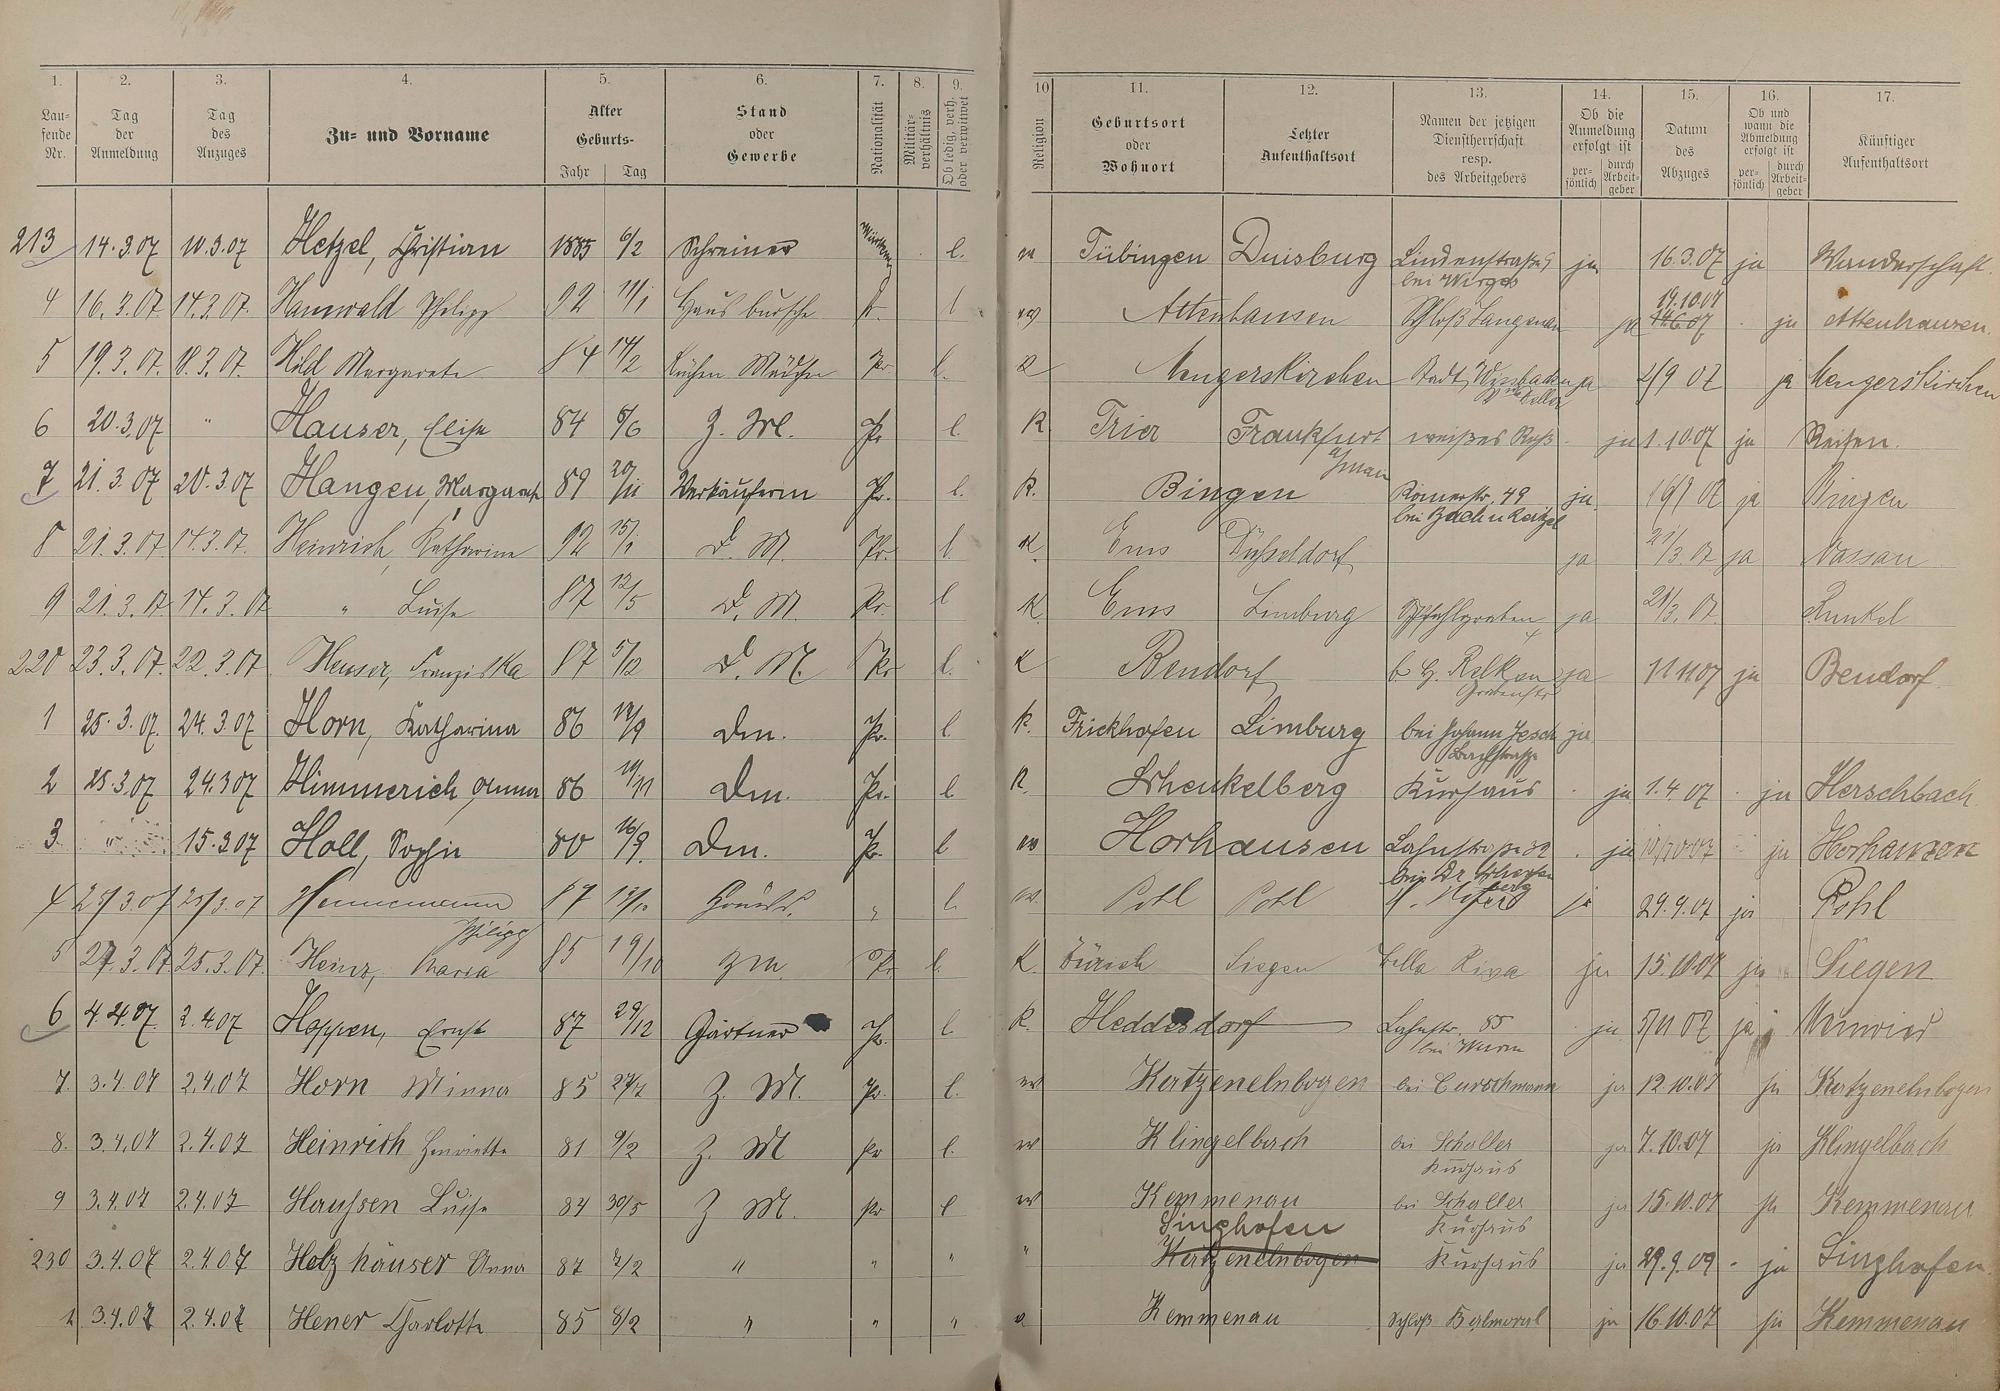 1. 2. 3. 4. 5. 6. 7. 8. 9. 10 11. 12. 13. 14. 15. 16. 17.
Laufende Nr. Tag der Anmeldung Tag des Anzuges Zu- und Vorname Alter Geburts- Jahr Tag Stand oder Gewerbe Nationalität Militärverhältnis Ob ledig, verh. oder verwitwet Religion Geburtsort oder Wohnort Letzter Aufenthaltsort Namen der jetzigen Dienstherrschaft resp. des Arbeitgebers Ob die Anmeldung erfolgt ist persönlich durch Arbeitgeber Datum des Abzuges Ob und wann die Abmeldung erfolgt ist persönlich durch Arbeitgeber Künftiger Aufenthaltsort
213 14.3.07 10.3.07 Hetzel, Christian 1885 6/2 Schreiner l. Tübingen Duisburg Lindenstraße 9 bei Wirges ja 16.3.07 ja Wanderschaft.
4 16.3.07 14.3.07. Hannwald Philipp 92 11/1 Hausbursche Pr. l Attenhausen Schloß Langenau ja 19.10.07 ja Attenhausen.
5 19.3.07. 18.3.07. Hild Margarete 84 14/2 Küchen Mädchen Pr l. K Mengerskirchen Stadt Wiesbaden ja 2/9 07 ja Mengerskirchen
6 20.3.07 " Hauser, Elise 84 8/6 Z. Mdl. Pr l. K Trier Frankfurt a/main weißes Roß ja 1.10.07 ja Reisen.
7 21.3.07 20.3.07 Hangen, Margareth 89 20/11 Verkäuferin Pr. l. K. Bingen Römerstr. 49 ja ja Bingen
8 21.3.07 14.3.07. Heinrich, Katharina 92 15/1 D. M. Pr. l K. Ems Düsseldorf ja 21/3.07 ja Nassau
9 21.3.07 14.3.07 " Luise 87 12/5 D. M. Pr. l K. Ems Limburg Pfahlgraben ja 21/3.07. Runkel
220 23.3.07. 22.3.07. Heuser, Franziska 87 5/12 D. M. Pr l. K Bendorf ja 1 11 07 ja Bendorf
1 25.3.07. 24.3.07 Horn, Katharina 86 12/9 Dm. Pr. l K. Frickhofen Limburg bei Johann Jesch Bachstraße ja
2 25.3.07 24.3 07 Himmerich, Anna 86 19/11 Dm. Pr. l K. Schenkelberg Kurhaus ja 1.4 07 ja Herschbach
3 " 15.3.07 Holl, Sophie 80 16/9. Dm. Pr. l Horhausen Lahnstraße ja ja Horhausen
4 27/3.07 25/3.07 Hennemann Philipp 87 " l. Pohl Pohl ja 29.9.07 ja Pohl
5 27.3.07 25.3.07. Heinz, Maria 85 19/10 Zm. Pr l. K. Zürich Siegen Bella Riva ja 15.10.07 ja Siegen
6 4.4.07. 2.4.07 Hoppen, Ernst 87 29/12 Gärtner Pr. l K. Heddesdorf Lahnstr. 85 bei Wurm ja 5/11 07 ja Neuwied
7 3.4.07 2.4.07 Horn Minna 85 27/7 Z. M. Pr. l. Katzenelnbogen bei Curschmann ja 12.10.07 ja Katzenelnbogen
8. 3.4.07 2.4.07 Heinrich Henriette 81 9/2 Z. M Pr l. Klingelbach bei Schaller Kurhaus ja 7.10.07 ja Klingelbach
9 3.4.07 2.4.07 Haussen Luise 84 30/5 Z M. Pr l Kemmenau bei Schaller Kurhaus ja 15.10.07 ja Kemmenau
230 3.4.07 2.4.07 Holzhäuser Anna 87 7/2 " " " " Singhofen Katzenelnbogen Kurhaus ja 29.9.09 ja Singhofen.
1 3.4.07 2.4.07 Hener Charlotte 85 8/2 " " " Kemmenau Schloß Balmoral ja 16.10.07 ja Kemmenau